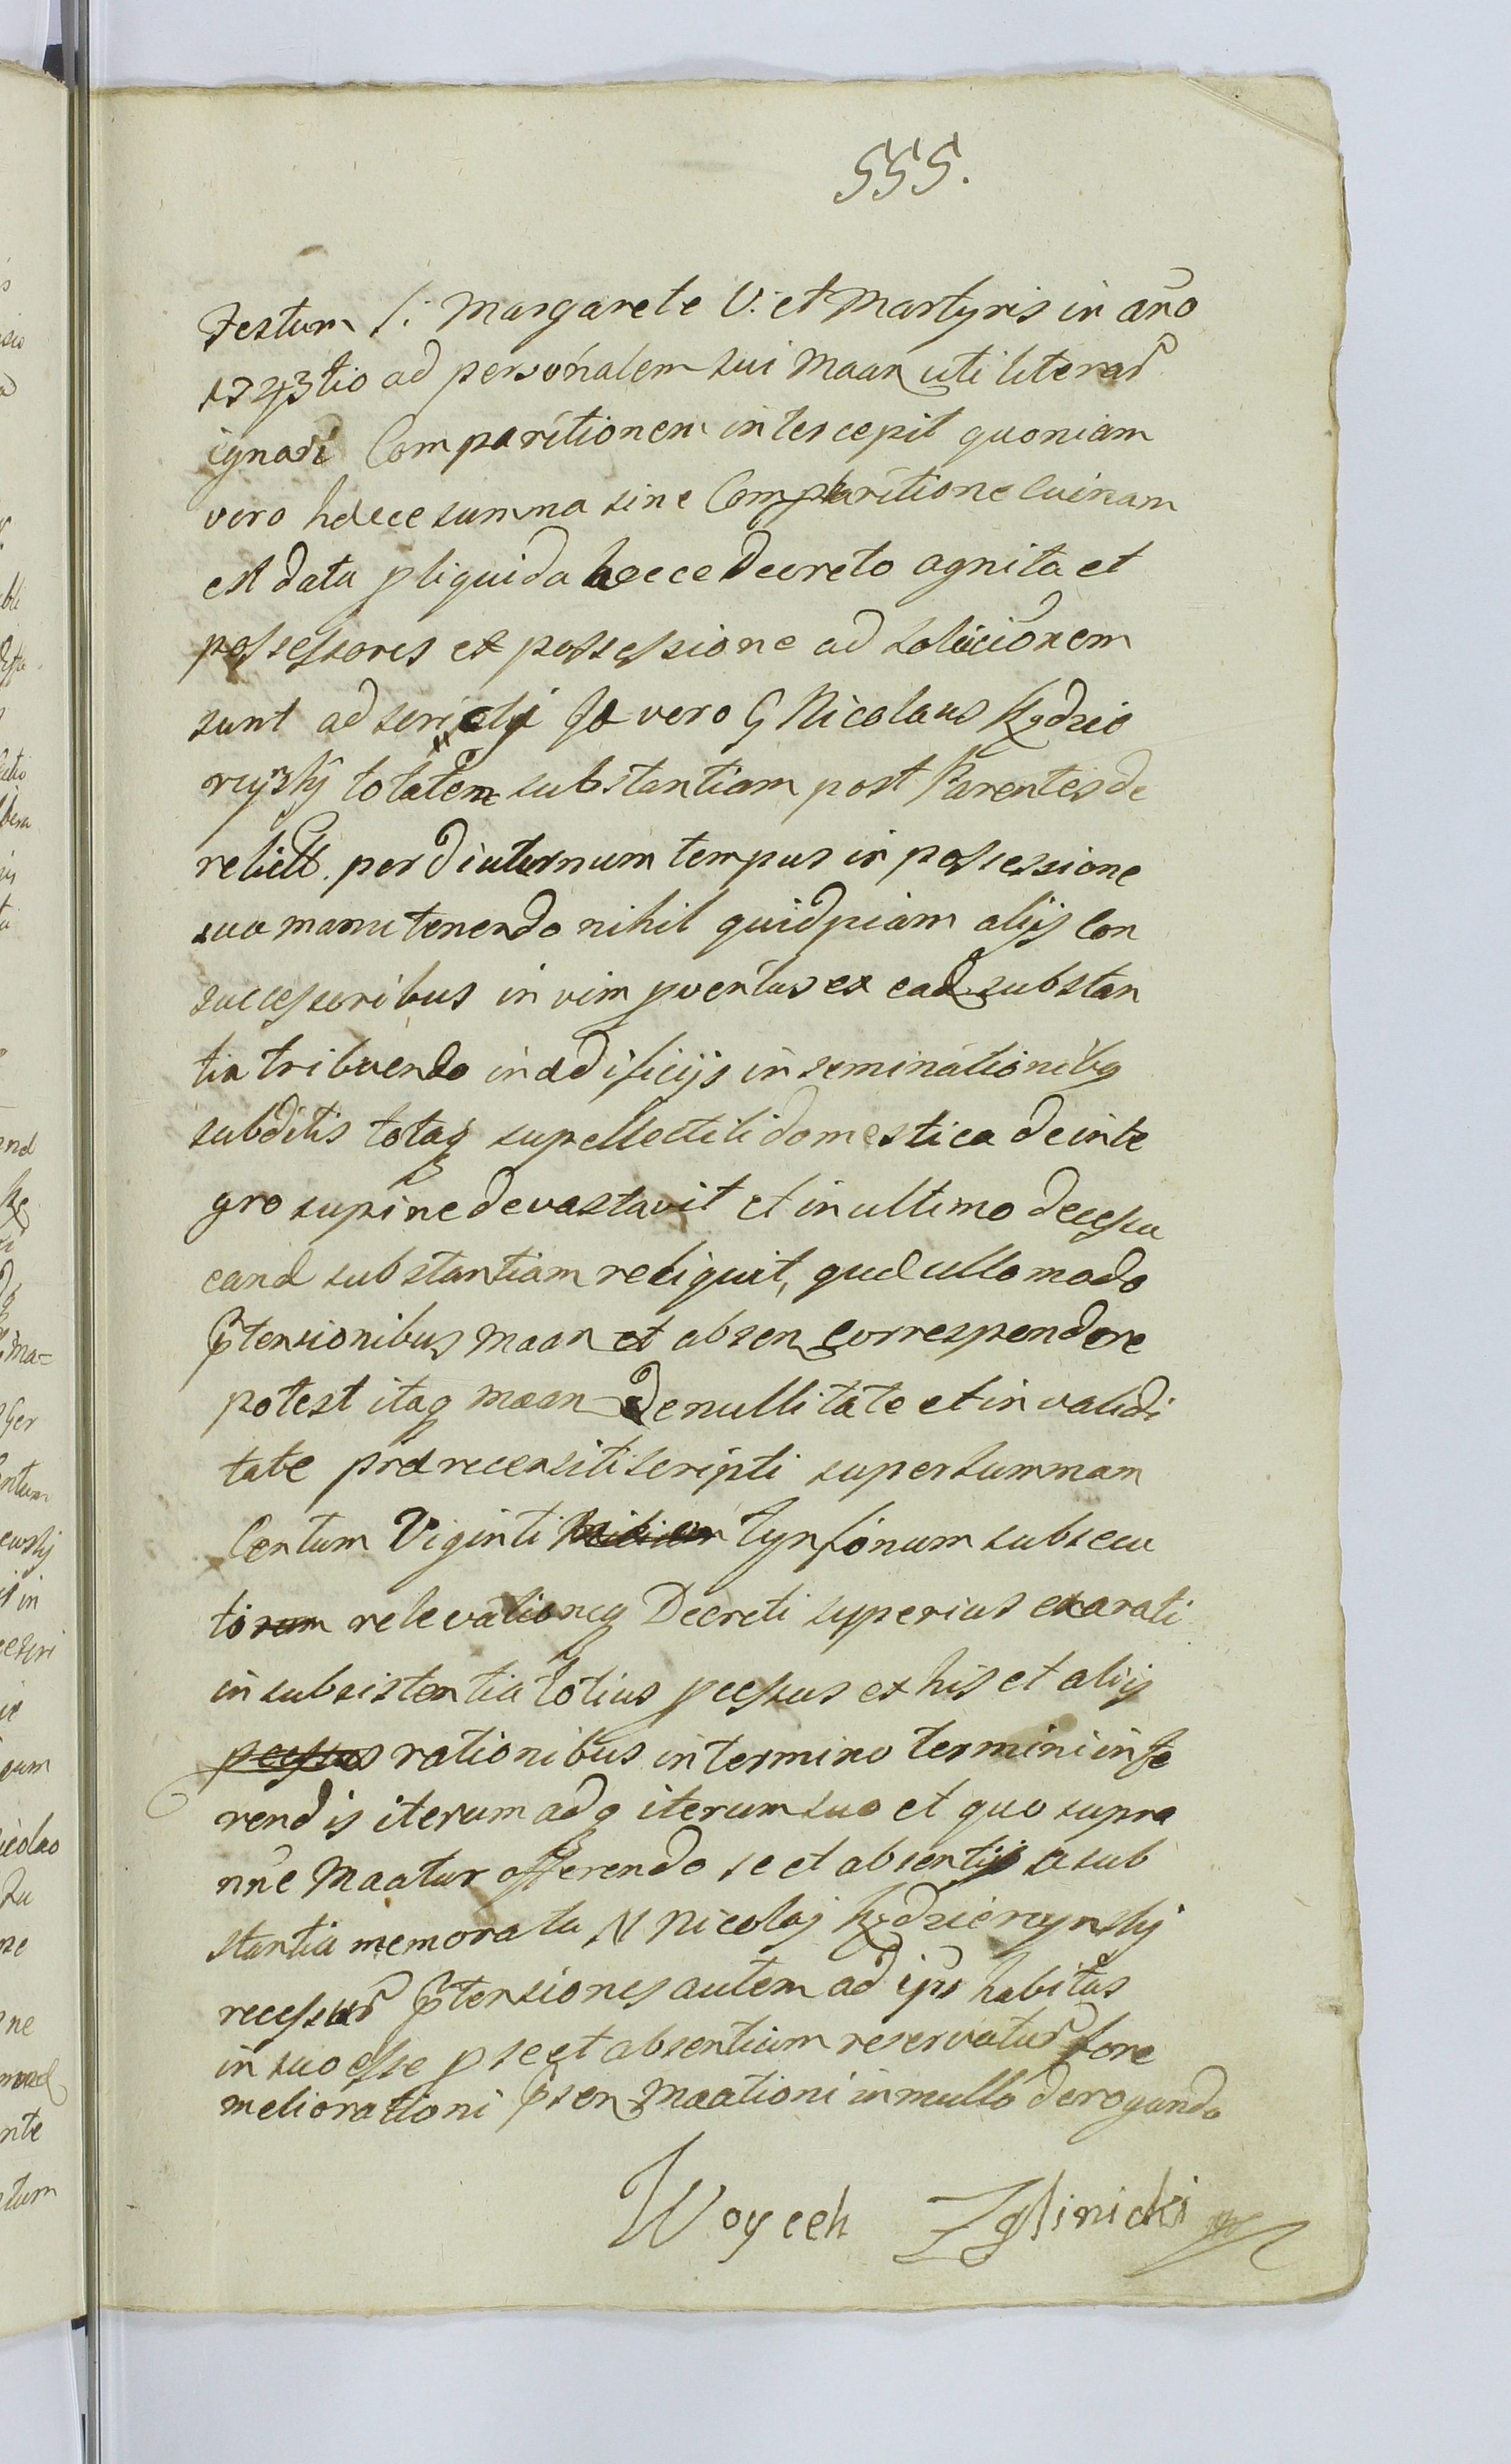 555.
Festum S: Margarete V: et Martyris in año
1743tio ad personalem sui Maan uti literar
ignari Comparitionem intercepit quoniam
vero haece summa sine Comparitione Cuinam
est data p liquida haece Decreto agnita et
possessores ex possessione ad solucionem
sunt adscripti Ja vero G Nicolaus Kędzie
rzyski totalem substantiam post Parentes de
relict. per diuturnum tempus in possessione
sua manutenendo nihil quidpiam alijs Con
successoribus in vim proventus ex ead substan
tia tribuendo in ædificijs inseminationibq
subditis totaq supellectili domestica de inte
gro supine devastavit et in ultimo decessu
eand substantiam reliquit, quæ ullo modo
ptensionibus Maan et absen correspondere
potest itaq Maan de nullitate et invalidi
tate prærecensiti scripti super summam
Centum Viginti Tynfonum subsecu
ti relevationeq Decreti superius exarati
insubsistentia totius pcessus ex his et alijs
pcessus rationibus in termino termini infe
rendis iterum adq iterum suo et quo supra
nñe Maatur offerendo se et absentijs a sub
stantia memorata N Nicolaj Kędzierzynskj
recessur ptensiones autem ad ips habitas
in suo esse p se et absentium reservatur fore
meliorationi psen Maationi in nullo derogando
Woyceh Zglinicki